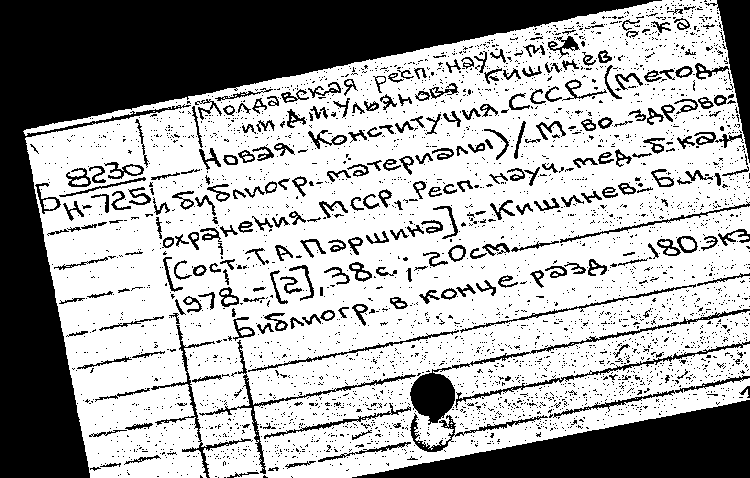 Молдавская респ. науч.-мед. б-ка
им. Д.И.Ульянова, Кишинев.
Новая Конституция СССР: (Метод.
и библиогр. материалы) / М-во здраво-
охранения МССР, Респ. науч. мед. б-ка;
[Сост. Т.А.Паршина]. - Кишинев: Б.и.,
1978. - [2], 38с.; 20см.
Библиогр. в конце разд. - 180 экз
Б 8230
Н-725